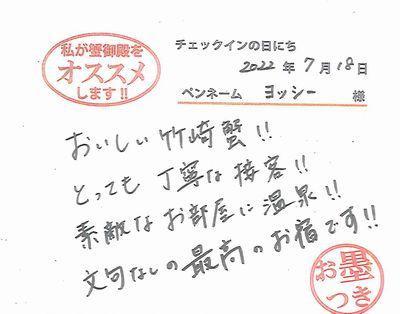 私が蟹御殿を
オススメ
します!!
チェックインの日にち
2022年7月18日
ペンネーム ヨッシー 様
おいしい竹崎蟹!!
とっても丁寧な接客!!
素敵なお部屋に温泉!!
文句なしの最高のお宿です!!
お墨
つき